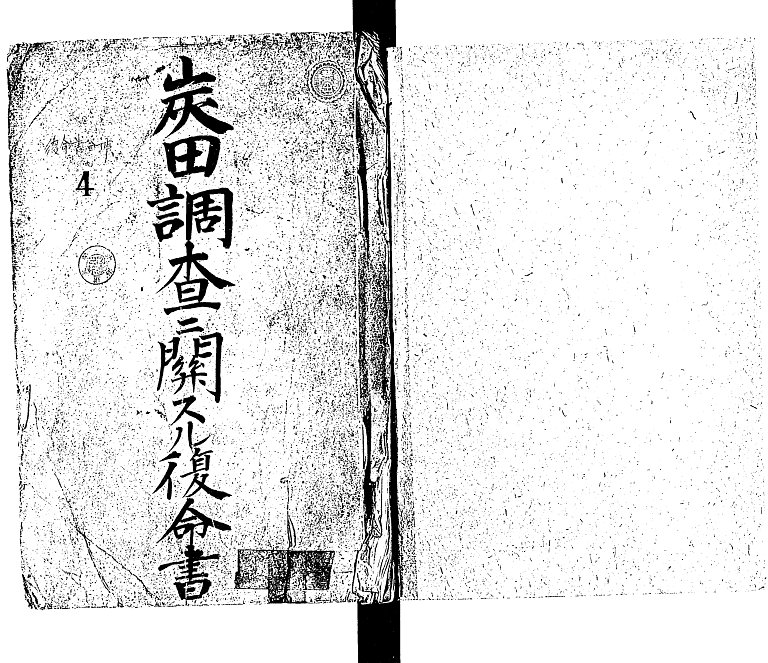 炭田調査ニ關スル復命書
4